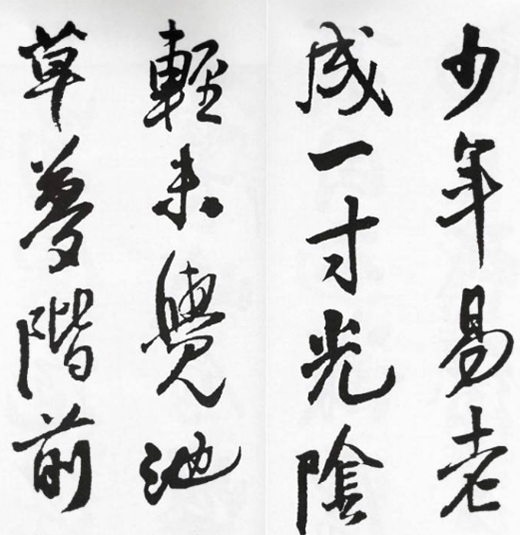 少年易老
成一寸光陰
輕未覺池
草夢階前